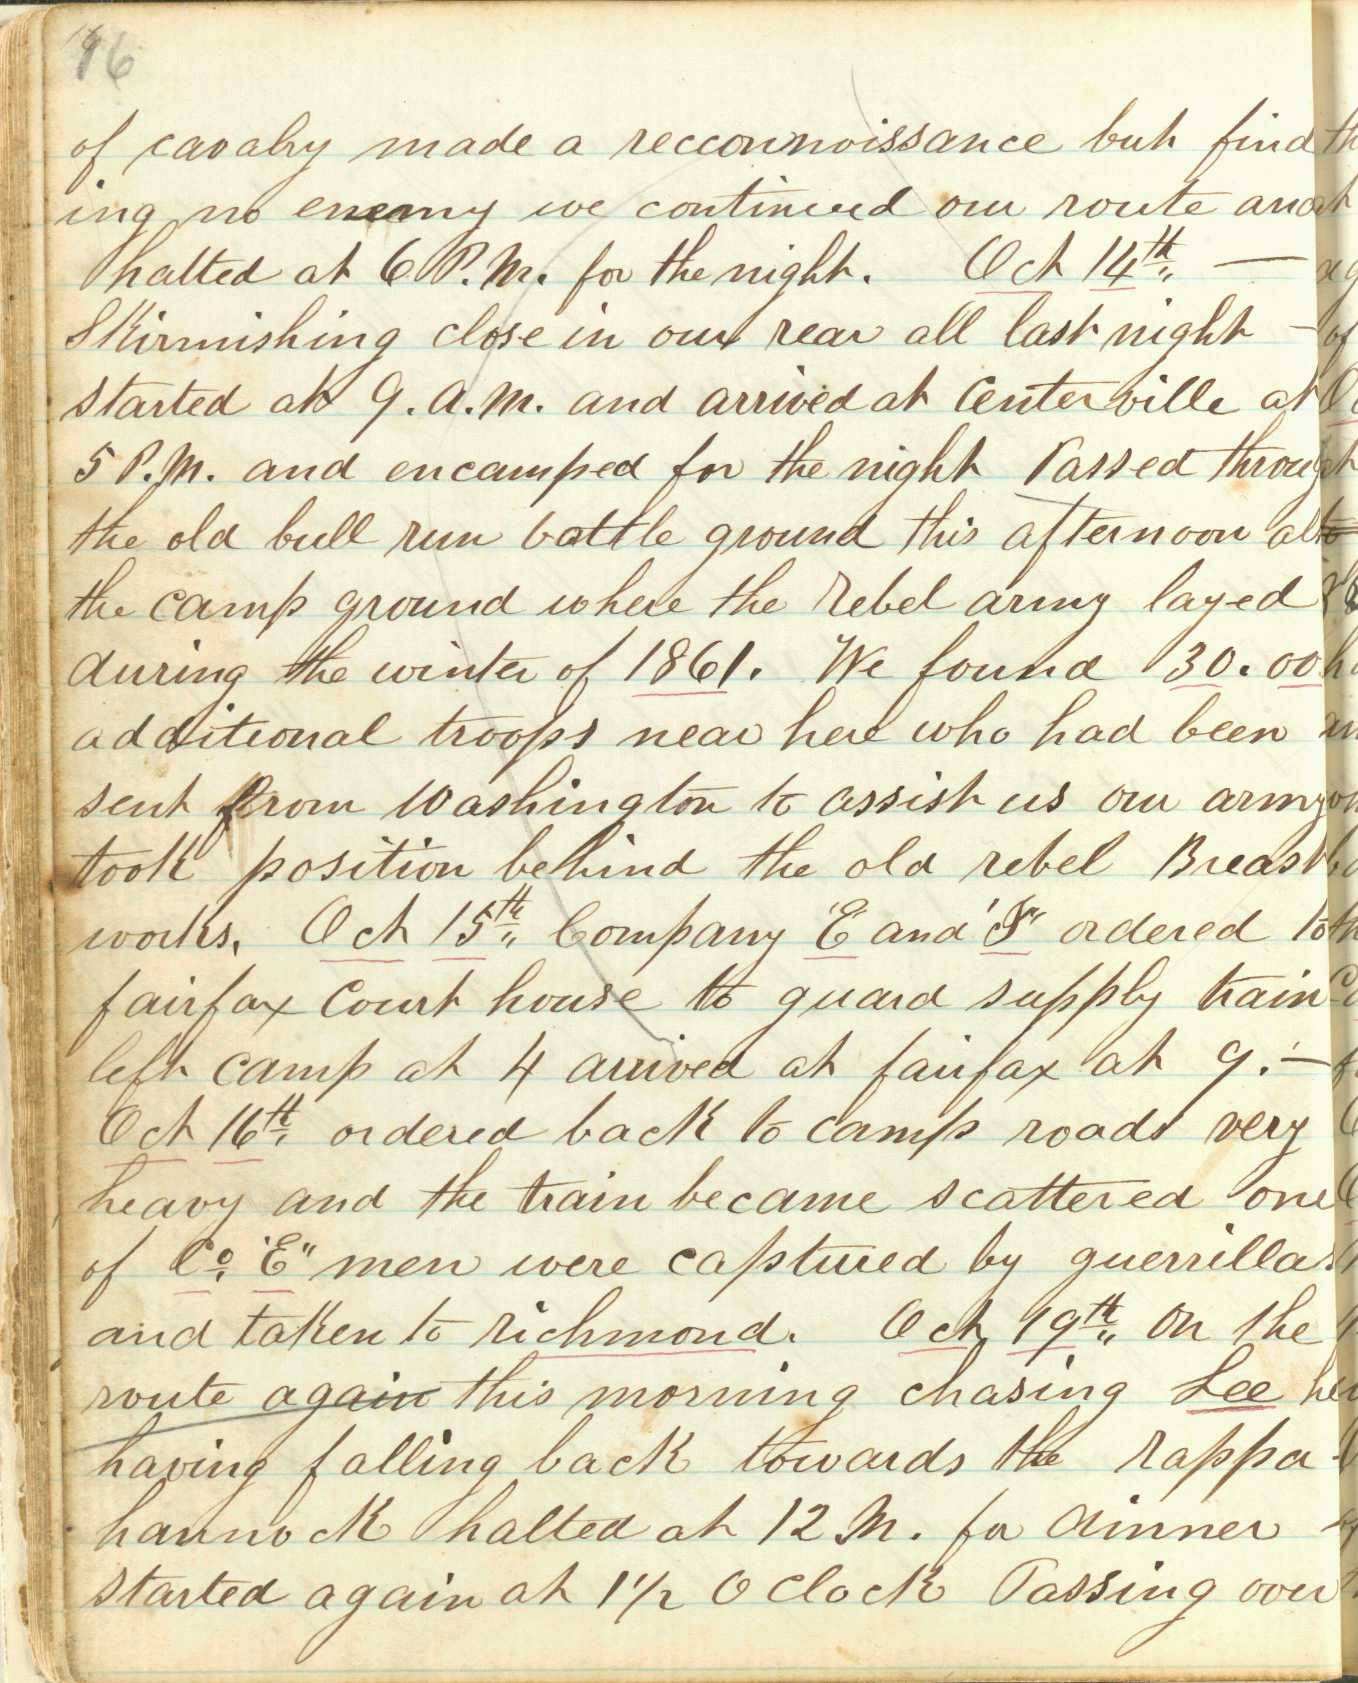 96
of cavalry made a recconnoissance but find
ing no enemy we continued our route and
halted at 6 P.M. for the night. Oct 14th —
Skirmishing close in our rear all last night –
started at 9. a.m. and arrived at Centerville at
5 P.M. and encamped for the night Passed throug
the old bull run battle ground this afternoon al
the camp ground where the rebel army layed
during the winter of 1861. We found 30.00
additional troops near here who had been
sent from Washington to assist us our army
took position behind the old rebel Breast
works. Oct 15th Company "E" and "F" ordered to
fairfax Court house to guard supply train
left camp at 4 arrived at fairfax at 9. –
Oct 16th ordered back to camp roads very
heavy and the train became scattered one
of Co. "E" men were captured by guerrillas
and taken to richmond. Oct 19th On the
route again this morning chasing Lee he
having falling back towards the rappa
hannock halted at 12 M. for dinner
started again at 1 1/2 O Clock Passing over